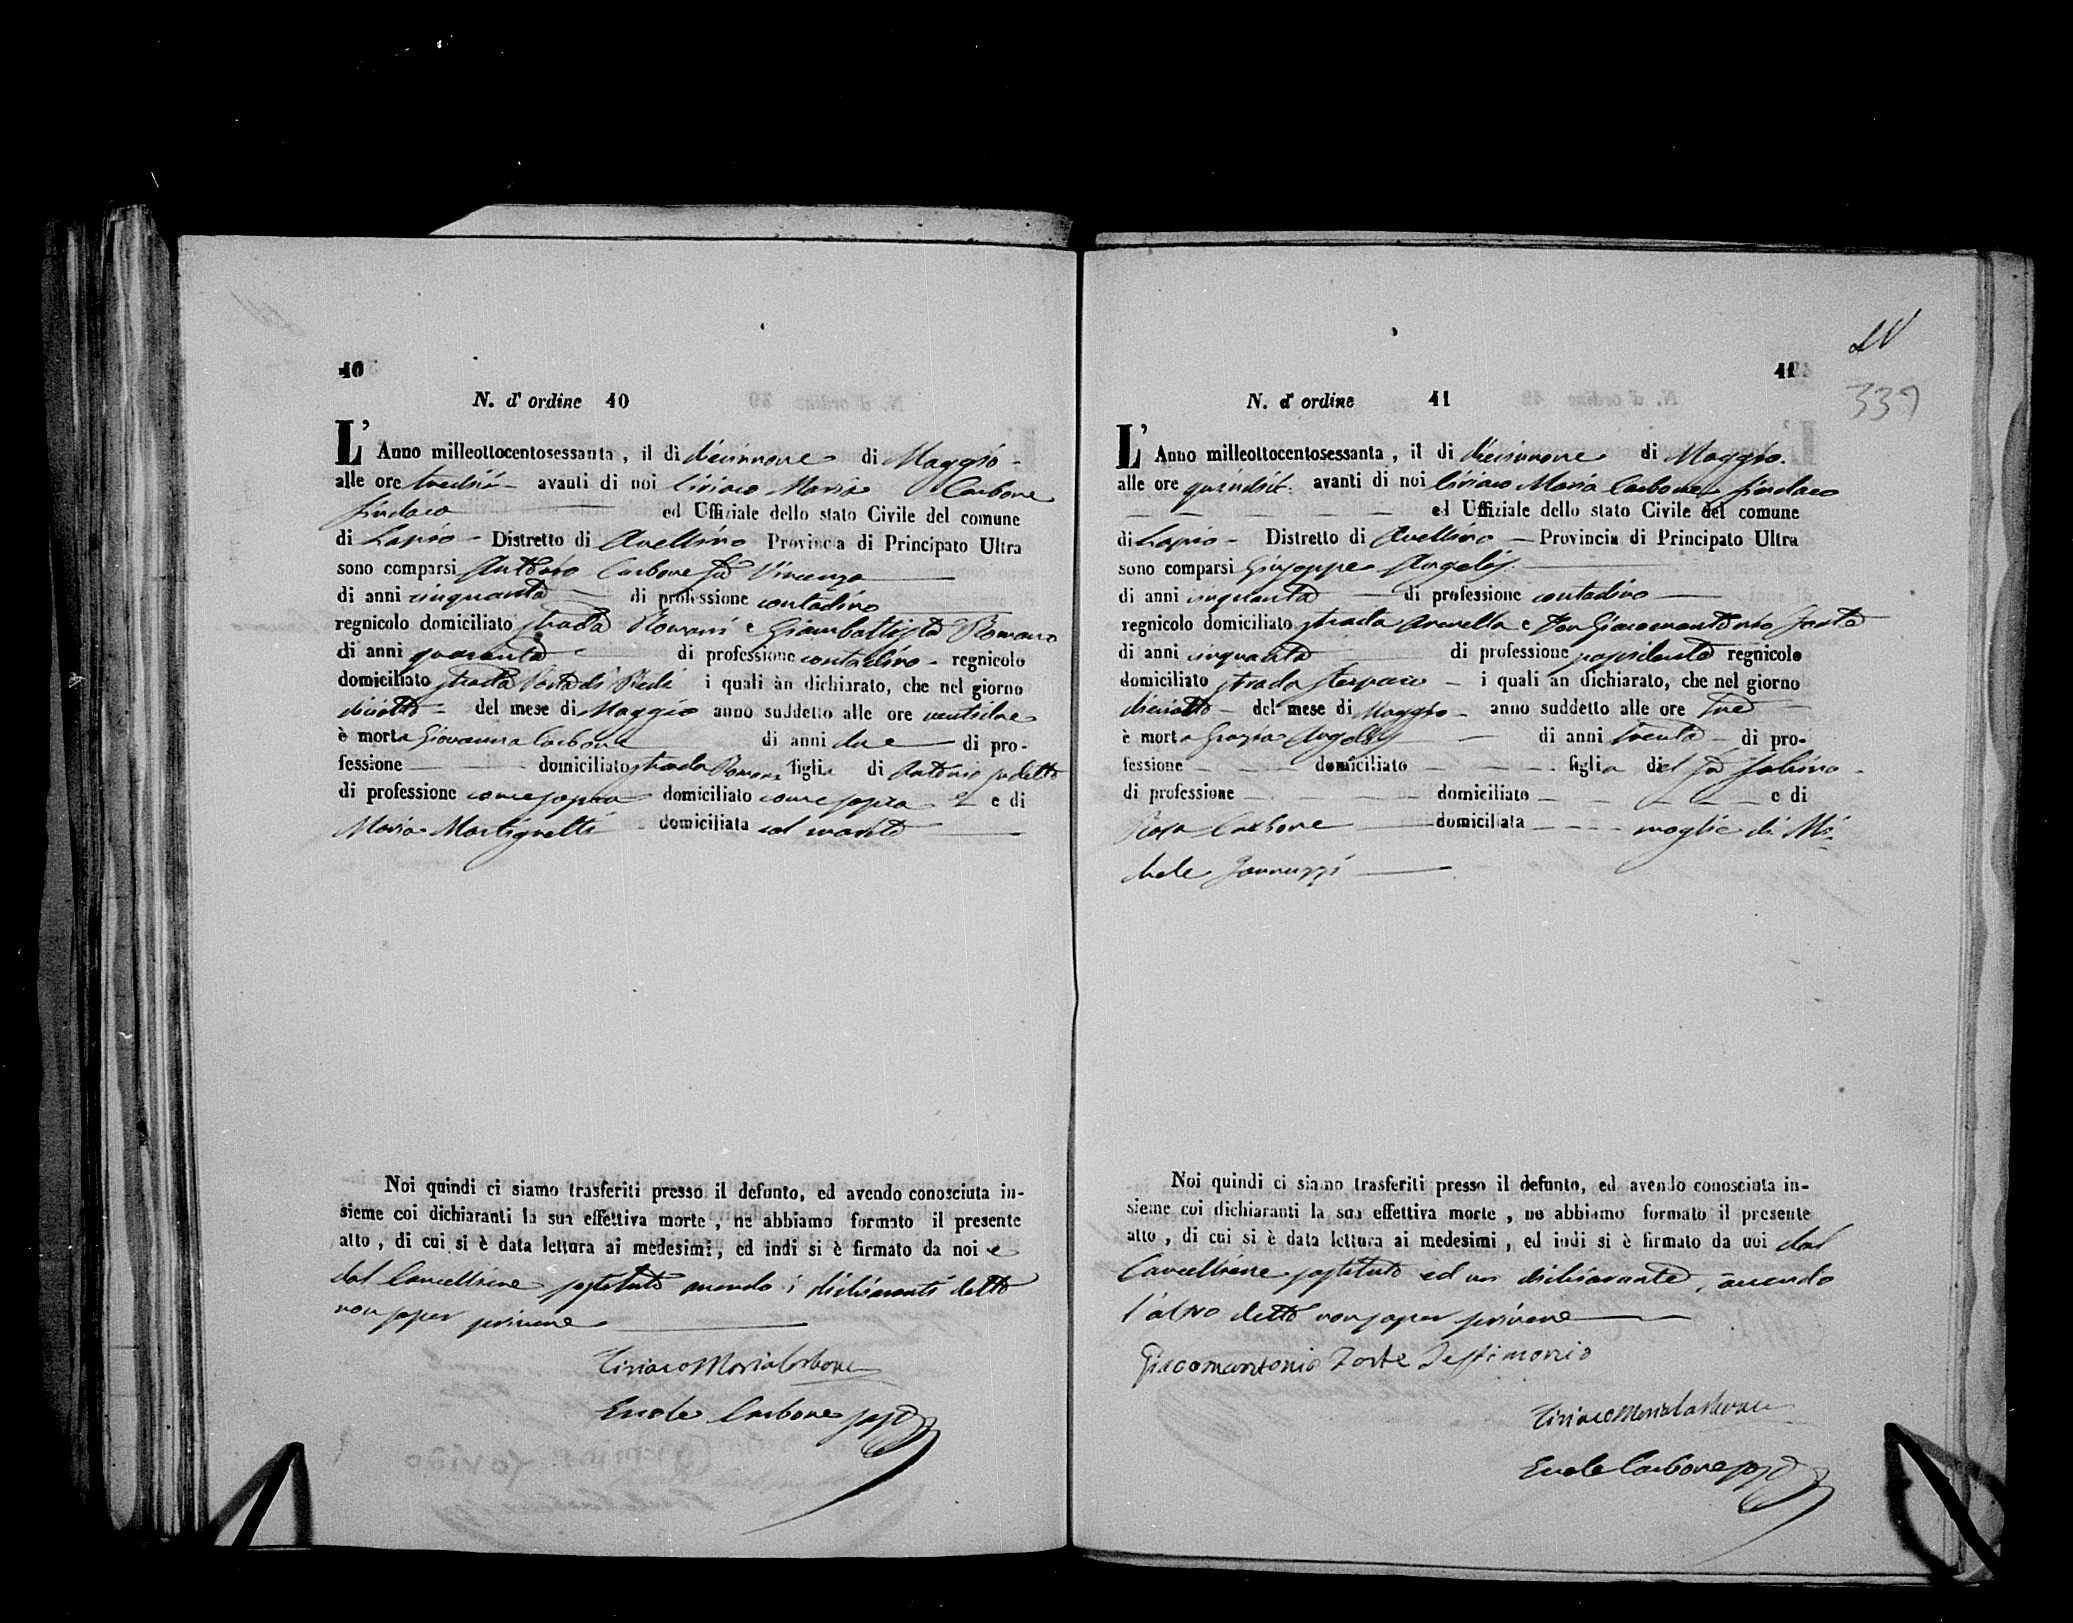 40
N. d' ordine 40
L' Anno milleottocentosessanta, il dì diciannove di Maggio
alle ore tredici avanti di noi Ciriaco Maria Carbone
Sindaco ed Uffiziale dello stato Civile del comune
di Lapio Distretto di Avellino Provincia di Principato Ultra
sono comparsi Antonio Carbone fu Vincenzo
di anni cinquanta di professione contadino
regnicolo domiciliato strada Romani e Giambattista Romano
di anni quaranta di professione contadino regnicolo
domiciliato strada Porta di i quali àn dichiarato, che nel giorno
diciotto del mese di Maggio anno suddetto alle ore ventidue
è morta Giovanna Carbone di anni due di pro-
fessione domiciliato strada Romani figlia di Antonio sudetto
di professione come sopra domiciliato come sopra e di
Maria Martignetti domiciliata col marito
Noi quindi ci siamo trasferiti presso il defunto, ed avendo conosciuta in-
sieme coi dichiaranti la sua effettiva morte, ne abbiamo formato il presente
atto, di cui si è data lettura ai medesimi, ed indi si è firmato da noi e
dal Cancelliere sostituto avendo i dichiaranti detto
non saper scrivere
Ciriaco Maria Carbone
Ercole Carbone sosto
41
339
N. d' ordine 41
L' Anno milleottocentosessanta, il di diciannove di Maggio
alle ore quindici avanti di noi Ciriaco Maria Carbone Sindaco
ed Uffiziale dello stato Civile del comune
di Lapio Distretto di Avellino Provincia di Principato Ultra
sono comparsi Giuseppe Angelis
di anni cinquanta di professione contadino
regnicolo domiciliato strada Arenella e Don Giacomantonio Forte
di anni cinquanta di professione possidente regnicolo
domiciliato strada i quali àn dichiarato, che nel giorno
diciotto del mese di Maggio anno suddetto alle ore tre
è morta Grazia Angelis di anni trenta di pro-
fessione domiciliato figlia del fu Sabino
di professione domiciliato e di
Rosa Carbone domiciliata moglie di Mi-
chele Iannuzzi
Noi quindi ci siamo trasferiti presso il defunto, ed avendo conosciuta in-
sieme coi dichiaranti la sua effettiva morte, ne abbiamo formato il presente
atto, di cui si è data lettura ai medesimi, ed indi si è firmato da noi dal
Cancelliere sostituto ed un dichiarante, avendo
l'altro detto non saper scrivere
Giacomantonio Forte Testimonio
Ciriaco Maria Carbone
Ercole Carbone sosto